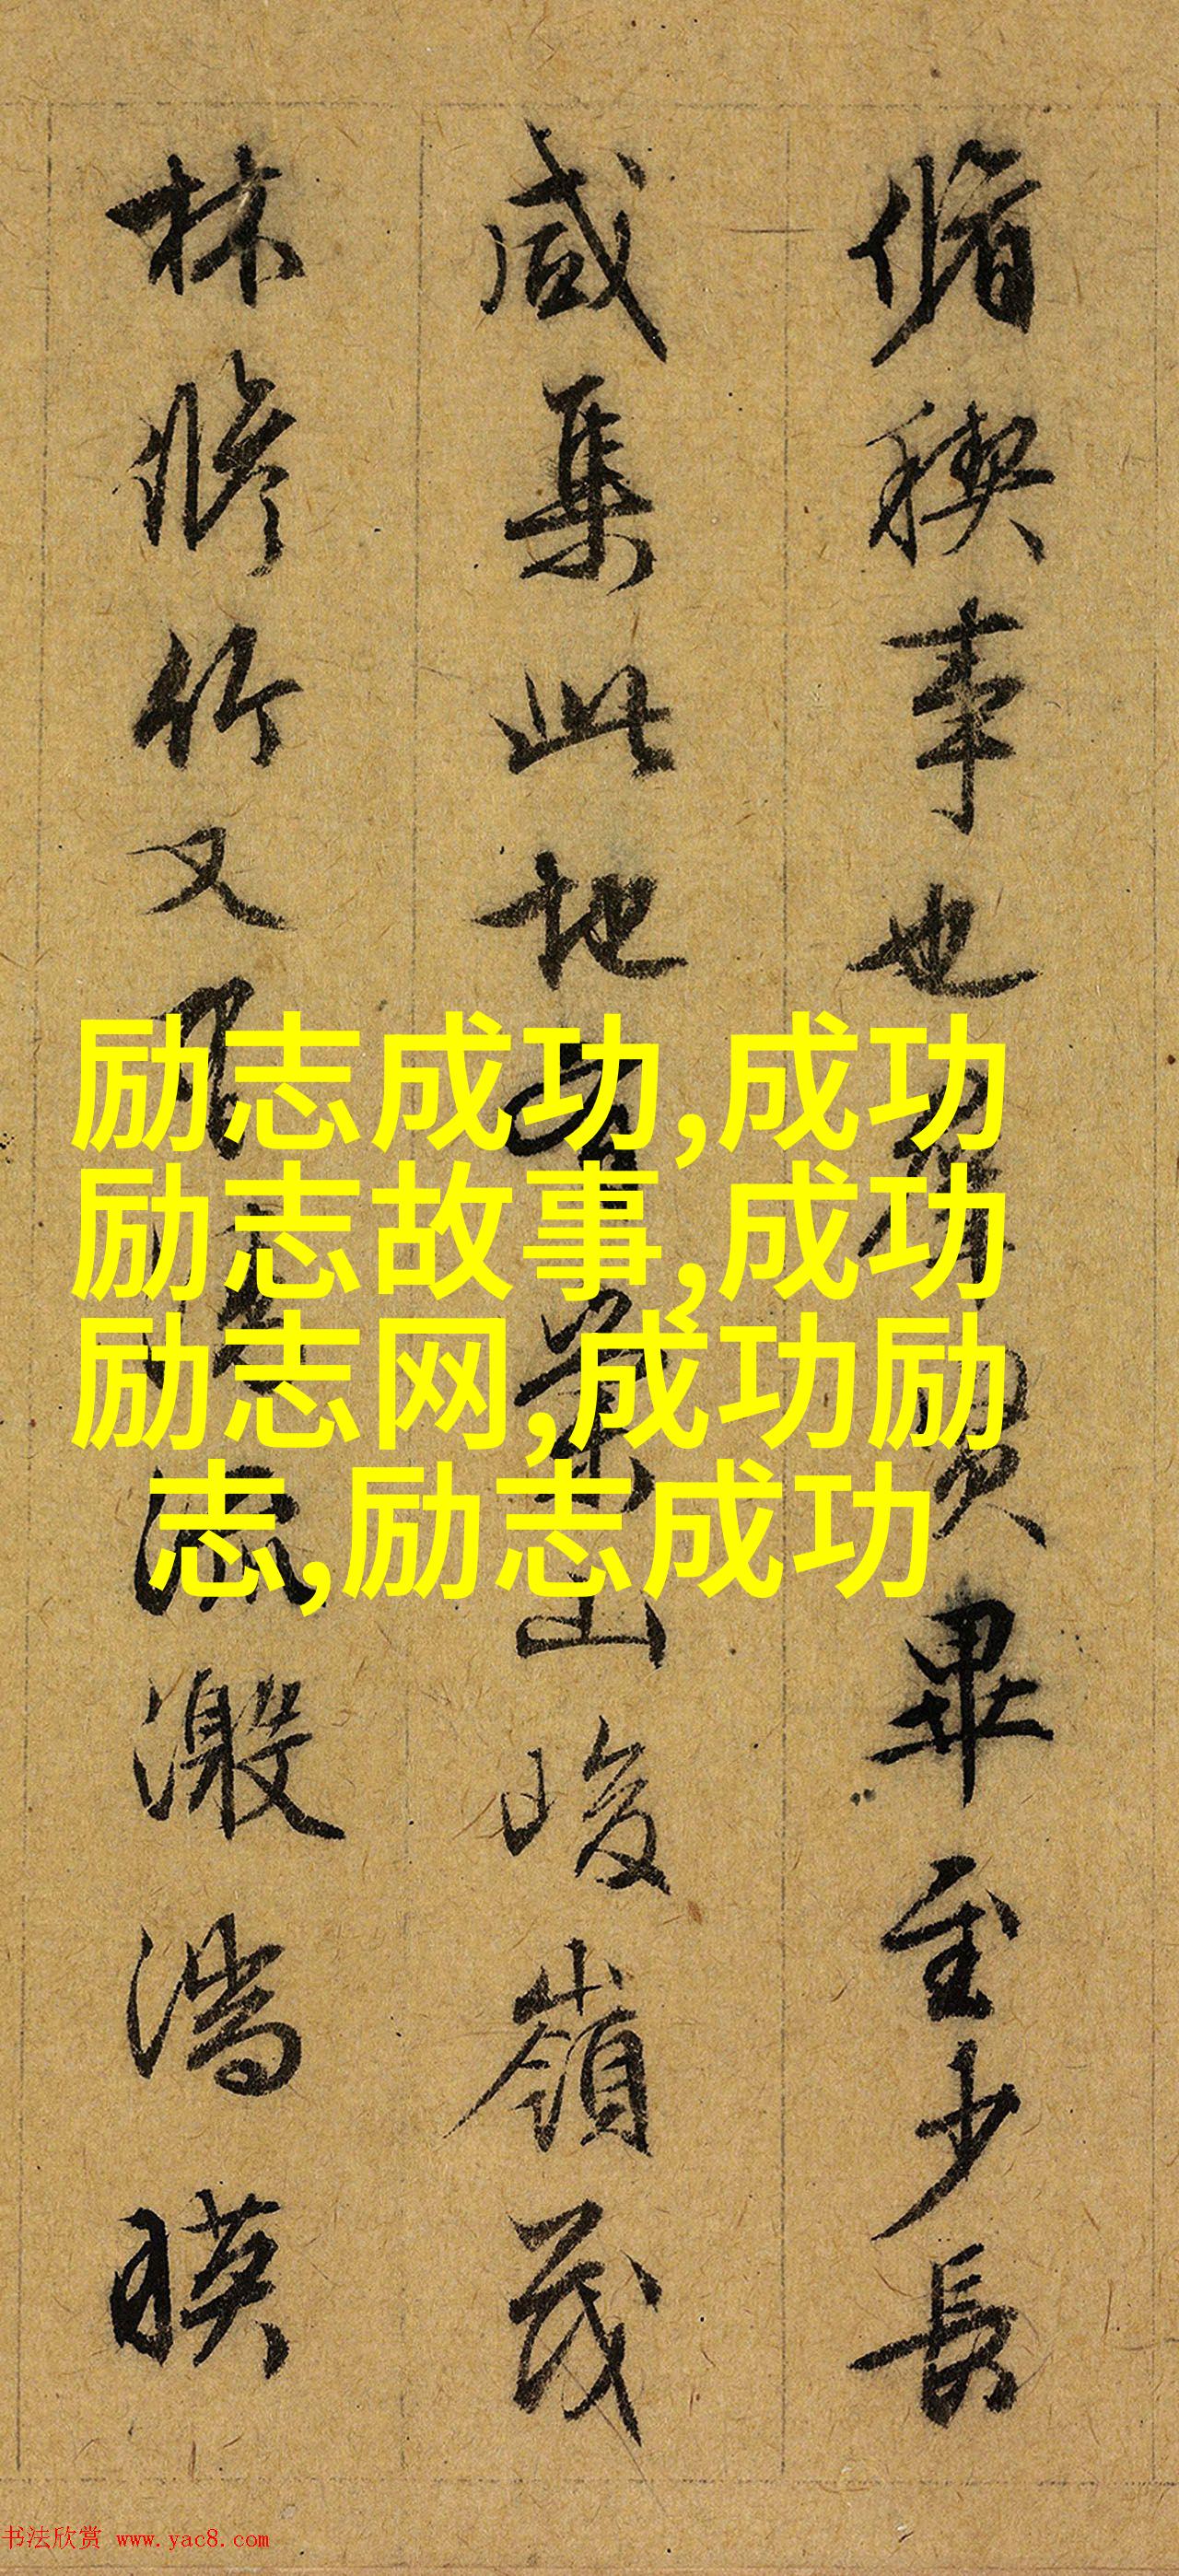 脩稧事也羣賢畢至少長
咸集此地有崇山峻嶺茂
林脩竹又有清流激湍暎
励志成功,成功
励志故事,成功
励志网,成功励
志,励志成功
书法欣赏 www.yac8.com